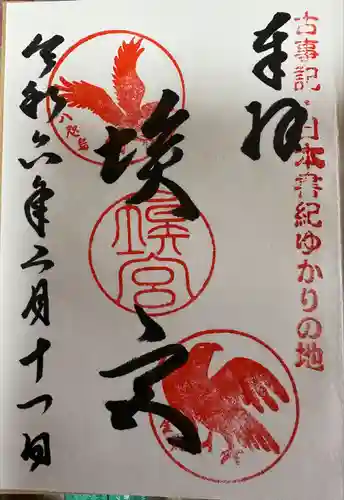 奉拝
古事記・日本書紀ゆかりの地
埃宮
埃宮
八咫烏
令和六年二月十一日